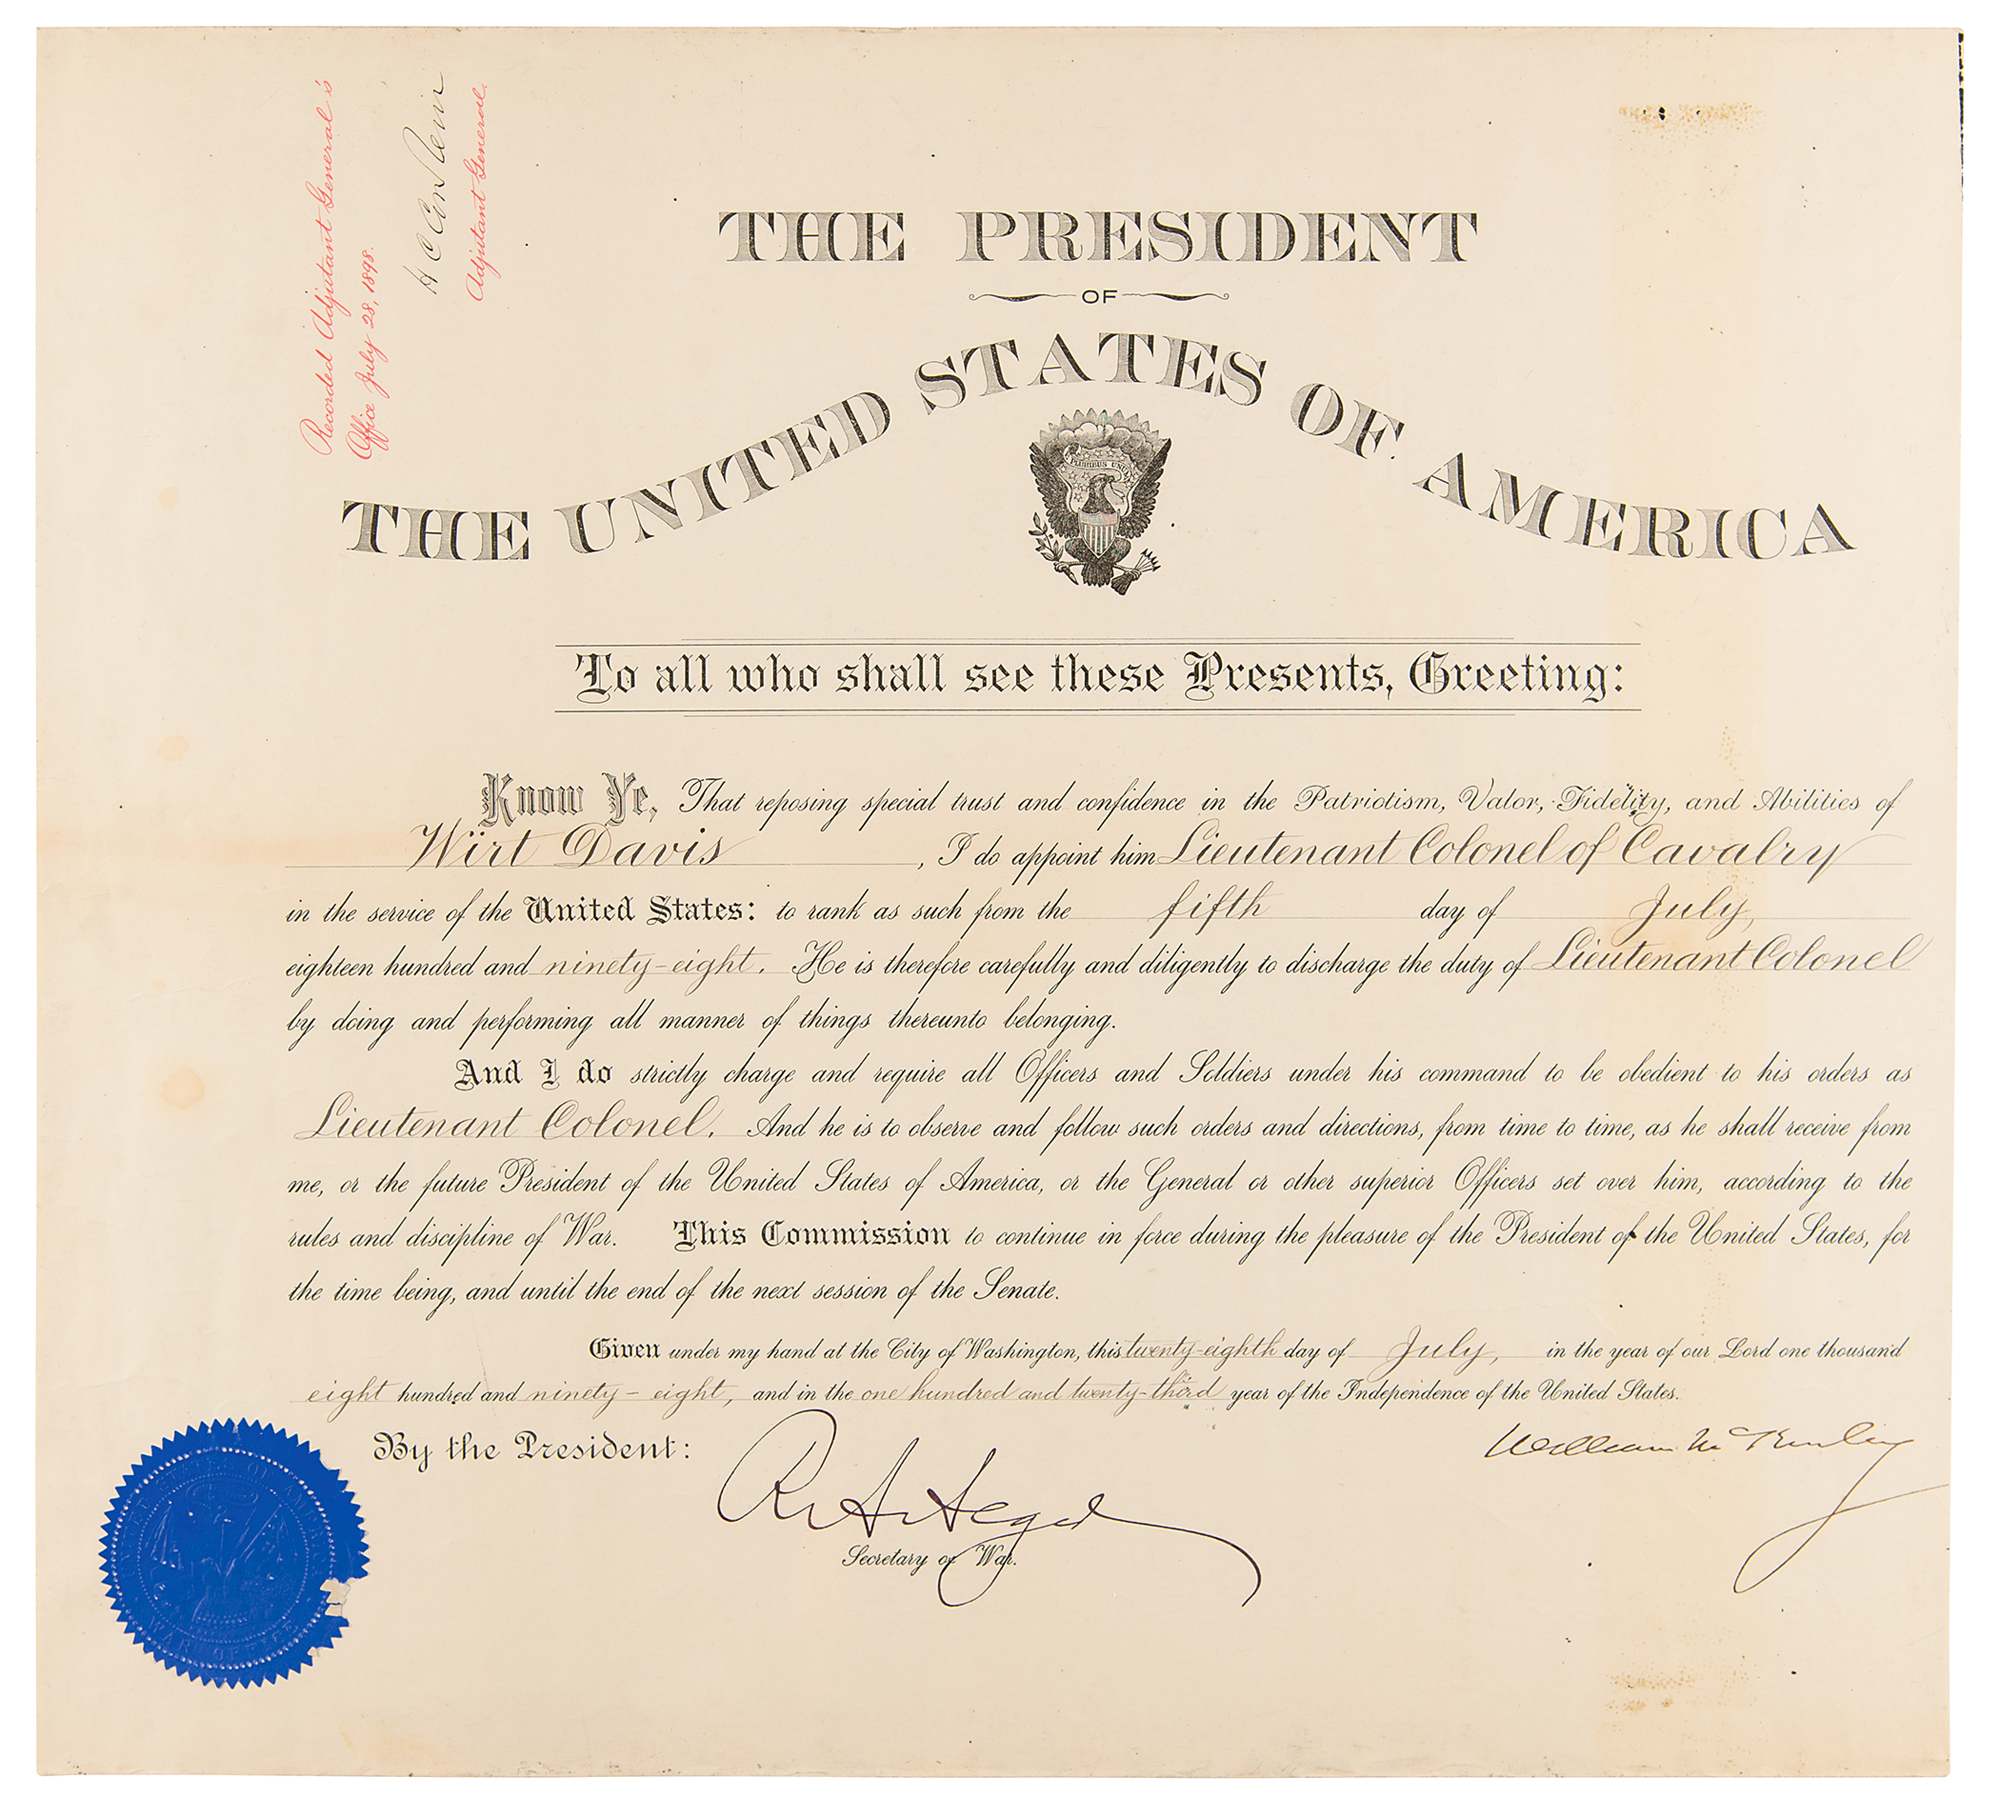 Recorded Adjutant General's
Office July 28, 1898.
Adjutant General.
THE PRESIDENT
OF
THE UNITED STATES OF AMERICA
E PLURIBUS UNUM
To all who shall see these Presents, Greeting:
Know Ye, That reposing special trust and confidence in the Patriotism, Valor, Fidelity, and Abilities of
Wirt Davis, I do appoint him Lieutenant Colonel of Cavalry
in the service of the United States: to rank as such from the fifth day of July,
eighteen hundred and ninety-eight. He is therefore carefully and diligently to discharge the duty of Lieutenant Colonel
by doing and performing all manner of things thereunto belonging.
And I do strictly charge and require all Officers and Soldiers under his command to be obedient to his orders as
Lieutenant Colonel. And he is to observe and follow such orders and directions, from time to time, as he shall receive from
me, or the future President of the United States of America, or the General or other superior Officers set over him, according to the
rules and discipline of War. This Commission to continue in force during the pleasure of the President of the United States, for
the time being, and until the end of the next session of the Senate.
Given under my hand at the City of Washington, this twenty-eighth day of July, in the year of our Lord one thousand
eight hundred and ninety-eight, and in the one hundred and twenty-third year of the Independence of the United States.
By the President:
William McKinley
R A Alger
Secretary of War.
UNITED STATES OF AMERICA
WAR OFFICE